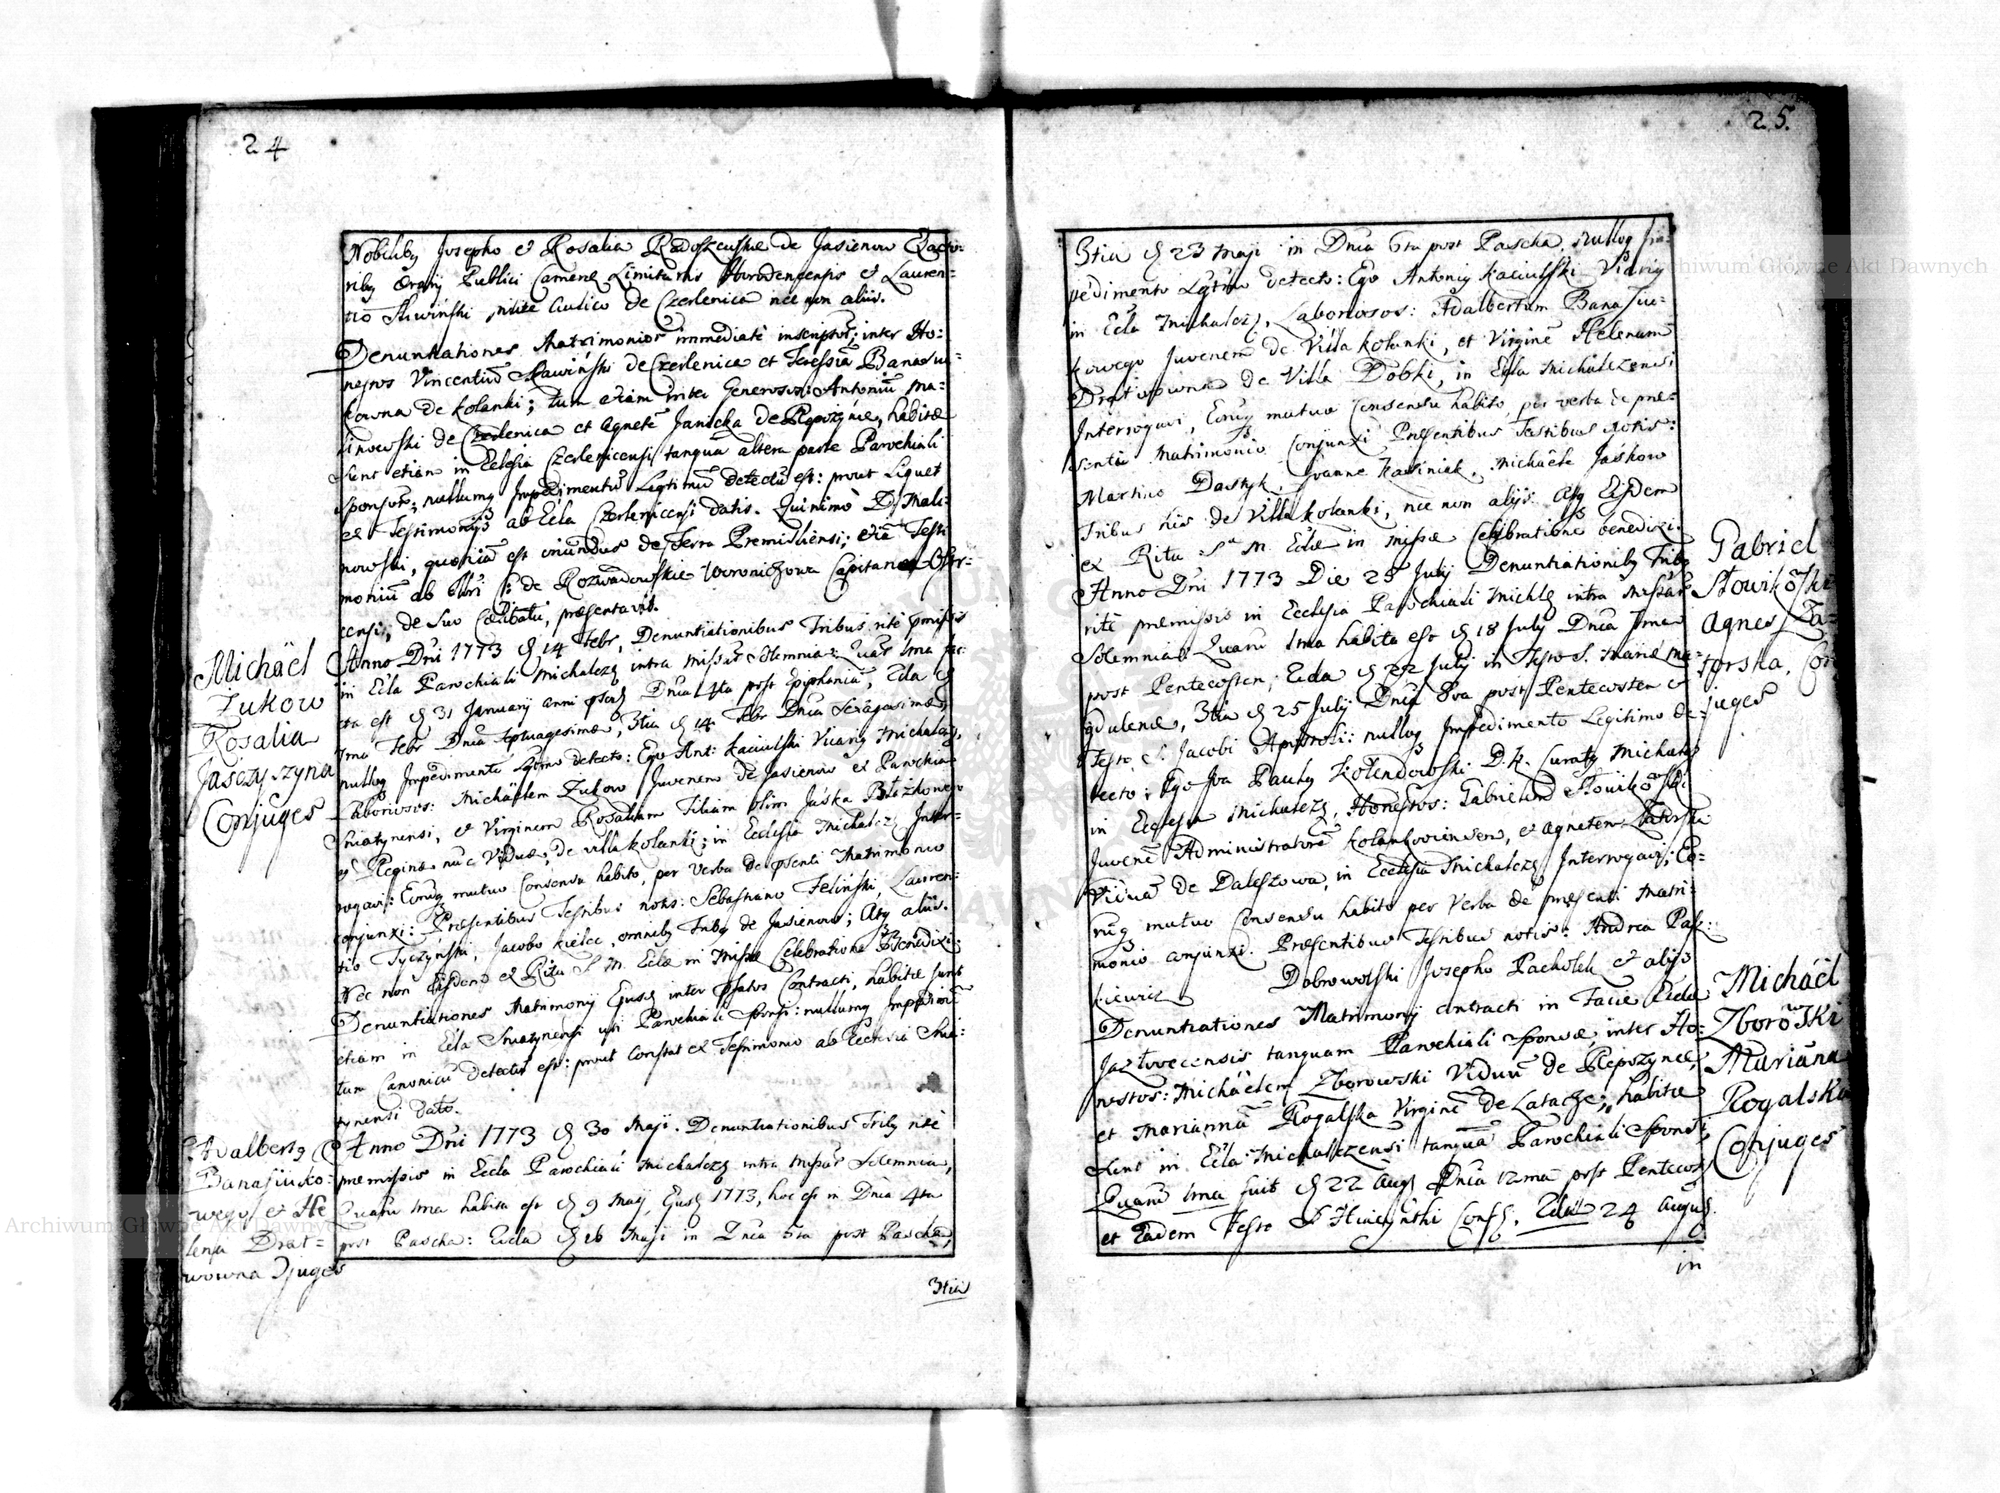 24
Nobilibq Josepho et Rosalia Radoszewskie de Jasienow Exacto-
ribq Ærarij Publici Cameræ Limitaris Horodencensis et Lauren-
tio Sliwiński milite Aulico de Czerlenica nec non aliis.
Denuntiationes Matrimonior immediatè inscriptor; inter Ho-
nestos Vincentiū Sławiński de Czerlenica et Teressiā Banasiu-
kowna de Kolanki; tum etiam inter Generosos: Antoniū Ma-
linowski de Czerlenica et Agnetē Janicka de Repozyńce, habitæ
sunt etiam in Eclesia Czerlenicensi tanquā altera parte Parochiali
sponsor; nullumq Impedimentū Legtimū detectū est: prout Liquet
ex Testimonijs ab Ecla Czerlenicensi datis. Quinimo D. Mali-
nowski, quoniā est oriundus de Terra Premisliensi; etiā Testi-
moniū ab de Rozwadowskie Woronichowa Capitanea Ostr-
censi, de suo Cælibatu, præsentavit.
Michaël
Zukow
Rosalia
Jasczyszyna
Conjuges
Anno Dni 1773 d 14 Febr, Denuntiationibus Tribus ritè præmissis
in Ecla Parochiali Michalcz intra Missar Solemnia: Quar 1ma fac-
ta est d 31 January anni Dnica 4ta post Epiphaniā, 2da d
7ma Febr Dnica Septuagesimæ, 3tia d 14 Febr Dnica Sexagesimæ,
nulloq Impedimento Lgtimo detecto: Ego Ant: Kaciulski Vicariq Michalcz,
Laboriosos: Michäelem Zukow Juvenem de Jasienow et Parochia
Sniatynensi, et Virginem Rosaliam Filiam olim Jaska
et Reginæ nūc Viduæ, de villa Kolanki; in Ecclesia Michalcz Inter-
rogavi: Eorūq mutuo Consensu habito, per verba de præsenti Matrimonio
conjunxi: Præsentibus Testibus notis: Sebastiano Felinski, Lauren-
tio Tyczynski, Jacobo Kielec, omnibq Tribq de Jasienow; Atq aliis.
Nec non Eisdem ex Ritu S M Eclæ in Missæ Celebratione Benedixi.
Denuntiationes Matrimonij Ejusd inter Contracti, habitæ sunt
etiam in Ecla Sniatynensi uti Parochiali Sponsi: nullumq Impedimē
tum Canonicū detectū est: prout Constat ex Testimonio ab Ecclesia Snia-
tynensi dato.
Adalbertq
Banasiuko-
wego et He
lena Drat-
wowna Conjuges
Anno Dni 1773 d 30 Maji. Denuntiationibus Tribq ritè
premissis in Eccla Parochiali Michalcz intra Missar Solemnia,
Quarū 1ma habita est d 9 Maij, Ejusd 1773, hoc est in Dnica 4ta
post Pascha: 2da d 16 Maji in Dnica 5ta post Pascha,
3tia
25.
3tia d 23 Maji in Dnica 6ta post Pascha, Nulloq Im-
pedimento Lgtimo detecto: Ego Antoniq Kaciulski Vicariq
in Ecla Michalcz, Laboriosos: Adalbertum Banasiu-
kowego Juvenem de Villa Kolanki, et Virginē Helenam
Dratwowna de Villa Dobki, in Ecla Michalczensi
Interrogavi, Eorūq mutuo Consensu habito, per verba de præ-
senti Matrimonio Conjunxi Præsentibus Testibus notis:
Martino Dastyk, Joanne Kasiniak, Michäele Jaskow
Tribus his de Villa Kolanki, nec non alijs. Atq Eisdem
ex Ritu S M. Eclæ in Missæ Celebratione benedixi.
Gabriel
Słowikoski
Agnes Za-
torska, Con
juges
Anno Dni 1773 Die 25 July Denuntiationibq Tribq
ritè præmissis in Ecclesia Parochiali Michlcz intra Missar
Solemnia: Quarū 1ma habita est d 18 July Dnica 7ma
post Pentecosten; 2da d 22 July in Festo S. Mariæ Ma-
gdalenæ, 3tia d 25 July Dnica 8va post Pentecosten et
Festo S. Jacobi Apostoli: nulloq Impedimento Legitimo de-
tecto: Ego Iva Paulq Kolendowski D.K. Curatq Michalcz
in Ecclesia Michalcz, Honestos: Gabrielem Słowikoski
Juvenē Administratorē Kolankoviensem, et Agneten Zatorska
Viduā de Daleszowa, in Ecclesia Michalcz Interrogavi; Eo-
rūq mutuo Consensu habito per Verba de præsenti Matri-
monio conjunxi. Præsentibus Testibus notis: Andrea
Dobrowolski Josepho Pacholek et alijs
Michäel
Zborowski
Mariana
Rogalska
Conjuges
Denuntiationes Matrimonij contracti in Facie Eclæ
Jazłowecensis tanquam Parochiali Sponsæ, inter Ho-
nestos: Michäelem Zborowski Viduū de Repszynce,
et Mariannā Rogalska Virginē de Latacze; habitæ
sunt in Ecla Michalczensi tanquā Parochiali Sponsi,
Quarū 1ma fuit d 22 Aug Dnica 12ma post Pentecos
et Eadem Festo S Hiacynthi Confs, 2da 24 August.
in
Archiwum Główne Akt Dawnych
Archiwum Główne Akt Dawnych